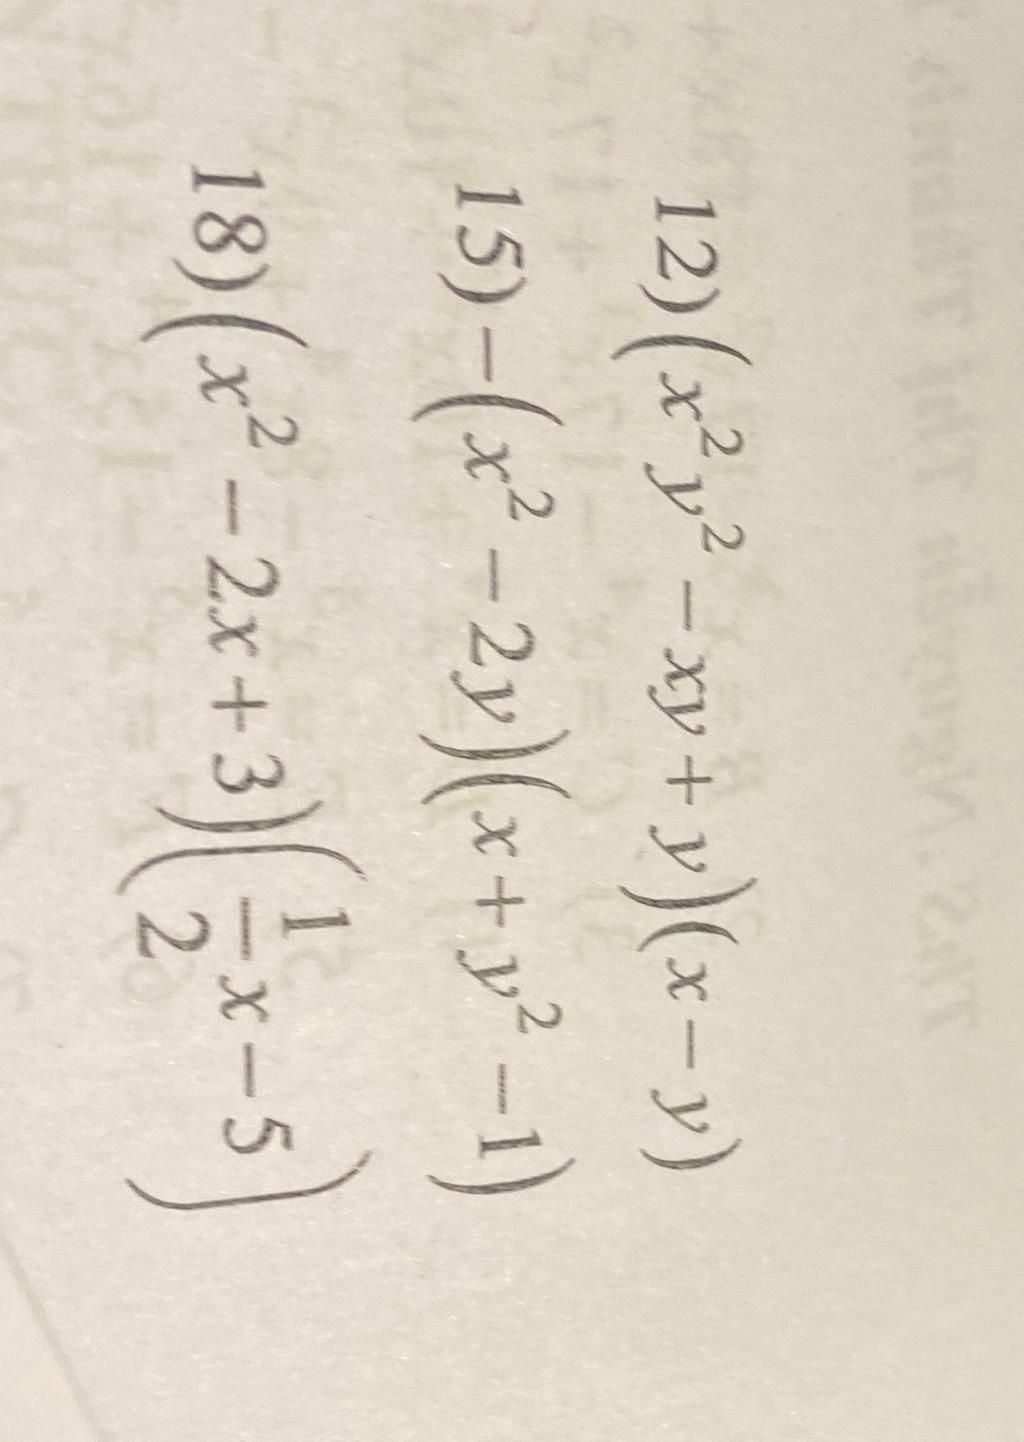 12) (x²y² − xy + y)(x − y)
15) −(x² − 2y)(x + y² − 1)
18) (x² − 2x + 3)(1/2 x − 5)